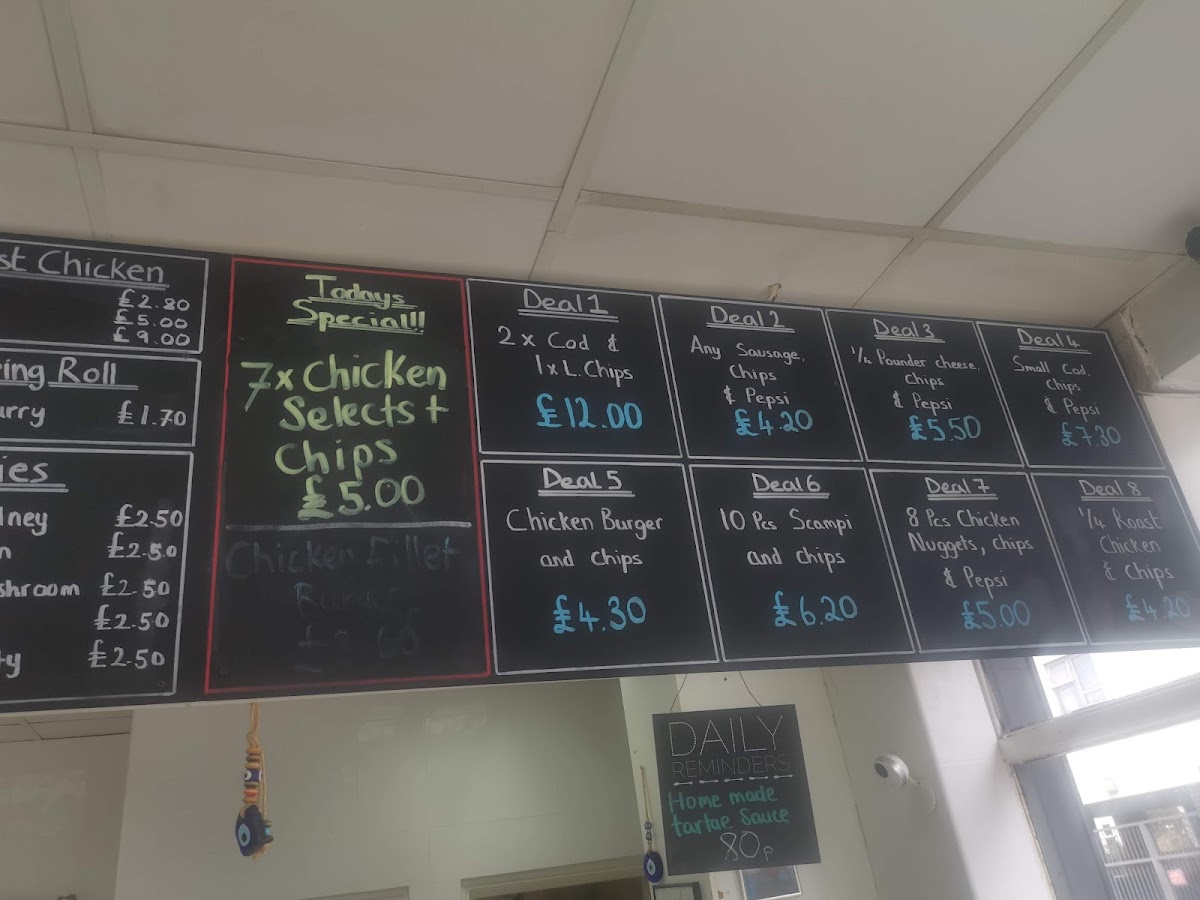 st Chicken
£2.80
£5.00
£9.00
ing Roll
urry £1.70
ies
dney £2.50
n £2.50
shroom £2.50
£2.50
ty £2.50
Todays
Special!!
7x Chicken
Selects +
Chips
£5.00
Chicken Fillet
Deal 1
2 x Cod &
1x L. Chips
£12.00
Deal 2
Any Sausage,
Chips
& Pepsi
£4.20
Deal 3
1/4 Pounder cheese,
Chips
& Pepsi
£5.50
Deal 4
Small Cod,
Chips
& Pepsi
£7.30
Deal 5
Chicken Burger
and Chips
£4.30
Deal 6
10 Pcs Scampi
and Chips
£6.20
Deal 7
8 Pcs Chicken
Nuggets, Chips
& Pepsi
£5.00
Deal 8
1/4 Roast
Chicken
& Chips
£4.20
DAILY
REMINDERS
Home made
tartae Sauce
80p